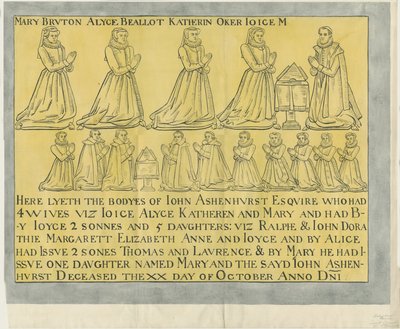 MARY BRVTON ALYCE BEALLOT KATHERIN OKER IOICE M
HERE LYETH THE BODYES OF IOHN ASHENHVRST ESQVIRE WHO HAD
4 WIVES VIZ IOICE ALYCE KATHEREN AND MARY AND HAD B-
Y IOYCE 2 SONNES AND 5 DAVGHTERS: VIZ RALPH & IOHN DORA
THIE MARGARETT ELIZABETH ANNE AND IOYCE AND BY ALICE
HAD ISSVE 2 SONES THOMAS AND LAVRENCE & BY MARY HE HAD I-
SSVE ONE DAVGHTER NAMED MARY AND THE SAYD IOHN ASHEN-
HVRST DECEASED THE XX DAY OF OCTOBER ANNO DNI